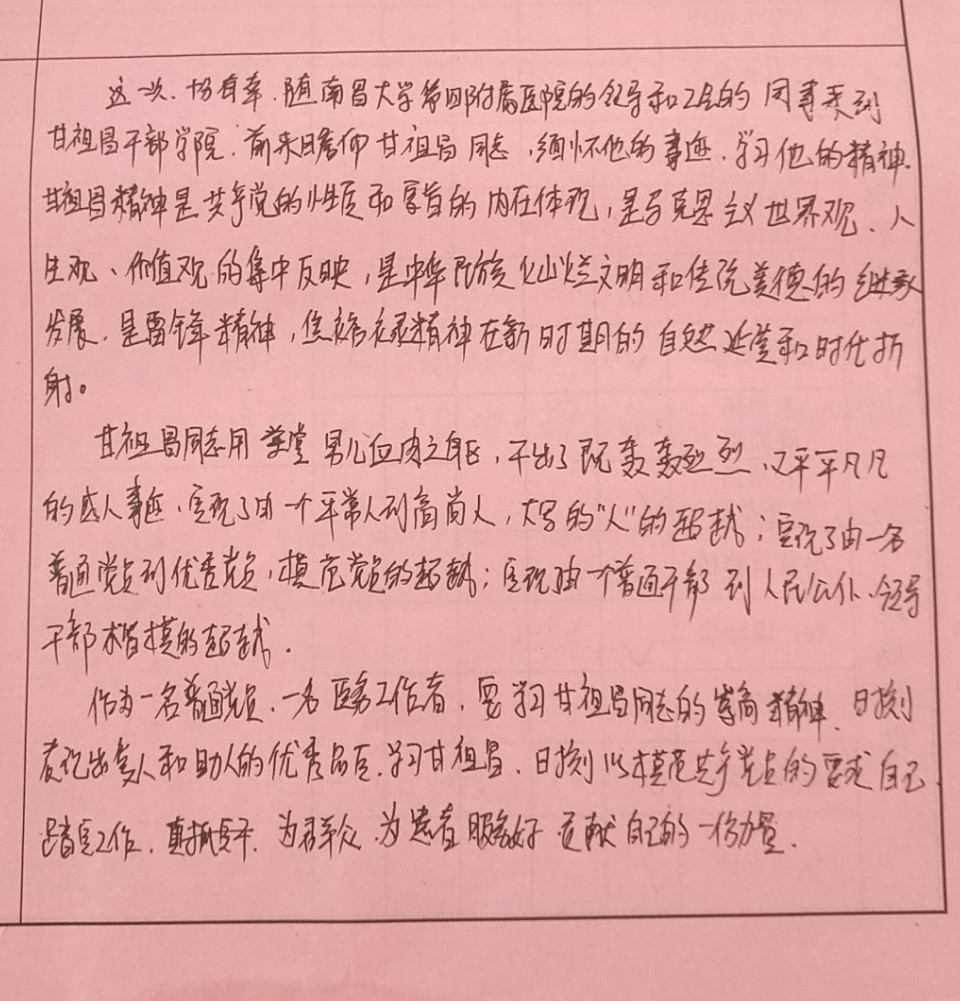 这一次,十分有幸,随南昌大学第四附属医院的领导和工会的同事来到
甘祖昌干部学院,前来瞻仰甘祖昌同志,缅怀他的事迹,学习他的精神.
甘祖昌精神是共产党的性质和宗旨的内在体现,是马克思主义世界观、人
生观、价值观的集中反映,是中华民族灿烂文明和传统美德的继承
发展,是雷锋精神,焦裕禄精神在新时期的自然延蒙和时代折
射。
甘祖昌同志用堂堂男儿血肉之躯,干出了既轰轰烈烈,又平平凡凡
的感人事迹,实现了由一个平常人到高尚人,大写的"人"的超越;实现了由一名
普通党员到优秀党员,模范党员的超越;实现由一个普通干部到人民公仆、领导
干部楷模的超越.
作为一名普通党员,一名医务工作者,要学习甘祖昌同志的崇高精神,时刻
表现出爱人和助人的优秀品质,学习甘祖昌,时刻以模范共产党员的要求自己,
踏实工作,真抓实干,为群众,为患者服务好,贡献自己的一份力量.